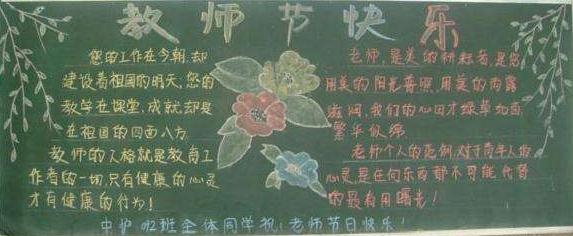 教师节快乐
您的工作在今朝,却
建设着祖国的明天,您的
教学在课堂,成就却是
在祖国的四面八方。
教师的人格就是教育工
作者的一切,只有健康的心灵
才有健康的行为!
老师,是美的耕耘者,是您
用美的阳光普照,用美的雨露
滋润,我们的心田才绿草如茵
繁华似锦。
老师个人的范例,对于青年人的
心灵是任何东西都不可能代替
的最有用曙光!
中护 班全体同学祝:老师节日快乐!